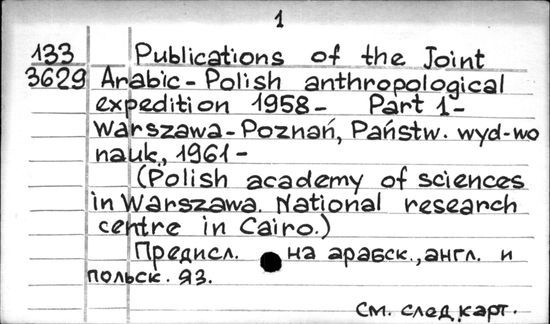 1
133 Publications of the Joint
3629 Arabic-Polish anthropological
expedition 1958- Part 1-
Warszawa-Poznań, Państw. wyd-wo
nauk., 1961-
(Polish academy of sciences
in Warszawa. National research
centre in Cairo.)
Предисл. на арабск., англ. и
польск. яз.
См. след карт.